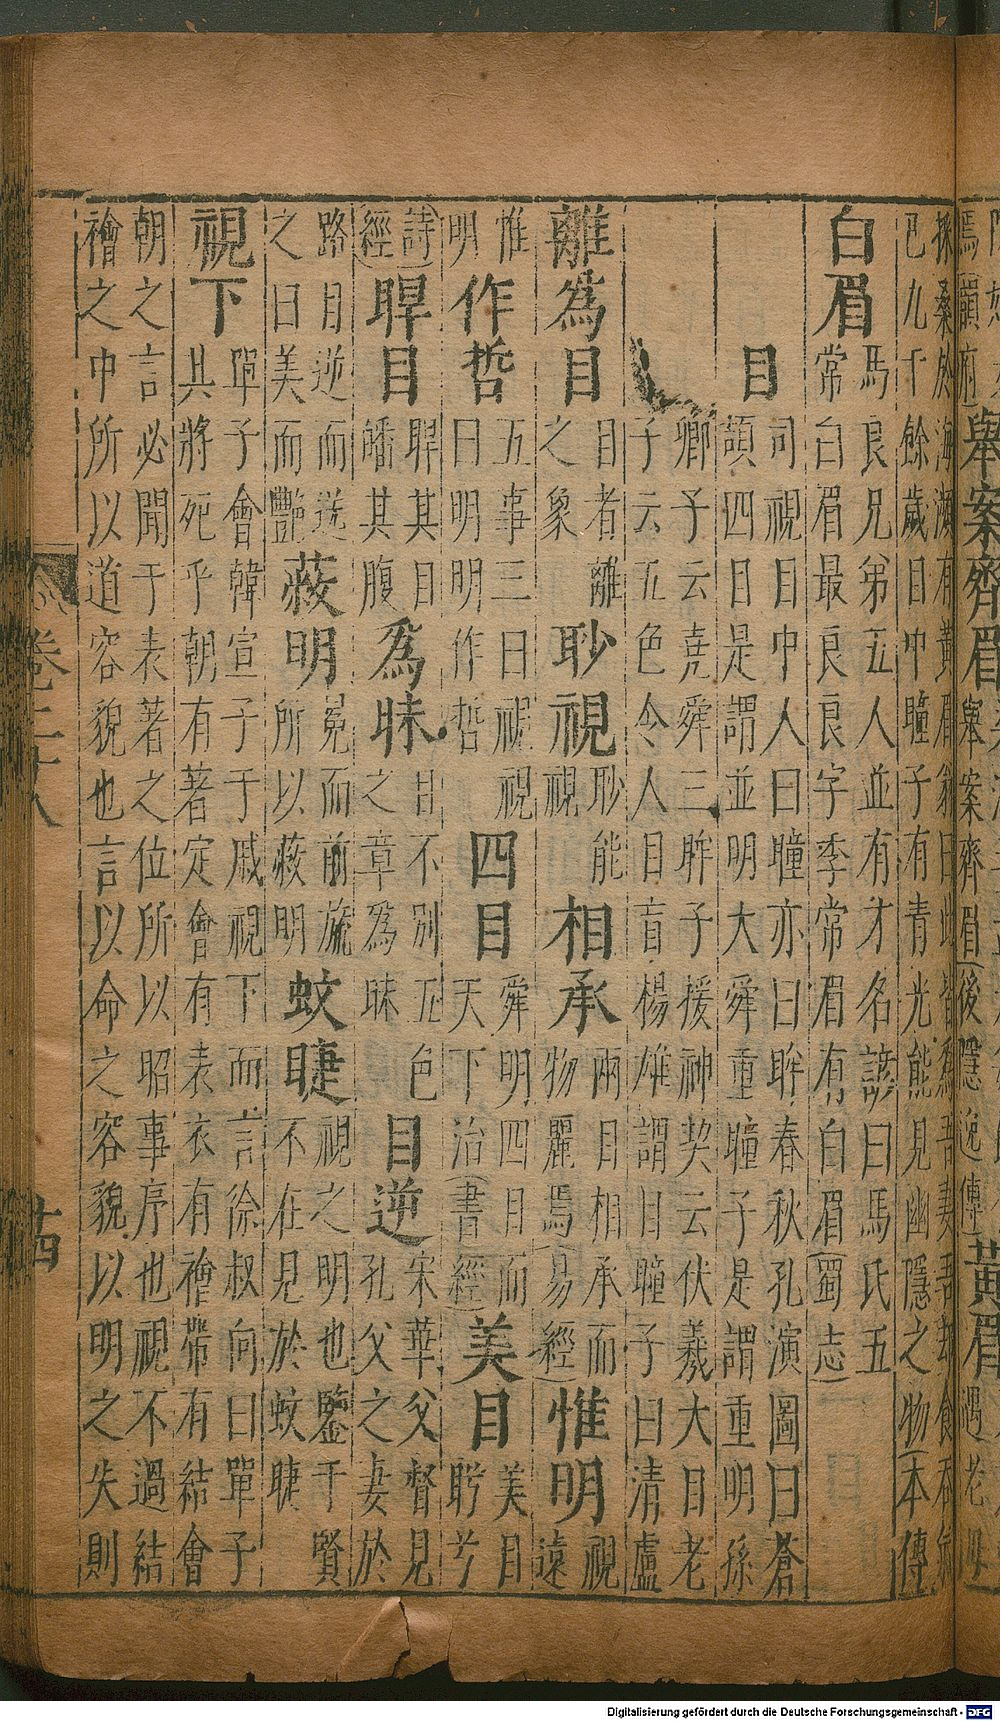 採桑於海濱有黃眉翁曰此昔為吾妻吾却食吞氣
已九千餘歲目中瞳子有青光能見幽隱之物(本傳
白眉
馬良兄弟五人並有才名諺曰馬氏五
常白眉最良良字季常眉有白眉(蜀志)
目
司視目中人曰瞳亦曰眸春秋孔演圖曰蒼
頡四目是謂並明大舜重瞳子是謂重明孫
卿子云堯舜三眸子援神契云伏羲大目老
子云五色令人目盲楊雄謂目瞳子曰清盧
離為目
目者離
之象
眇視
眇能
視
相承
兩目相承而
物麗焉(易經)
惟明
視
遠
惟
明
作哲
五事三曰視視
曰明明作哲
四目
舜明四目而
天下治(書經)
美目
美目
盼兮
(詩
經)
睅目
睅其目
皤其腹
為昧
目不別五色
之章為昧
目逆
宋華父督見
孔父之妻於
路目逆而送
之曰美而艷
蔽明
冕而前旒
所以蔽明
蚊睫
視之明也鑒于賢
不在見於蚊睫
視下
單子會韓宣子于戚視下而言徐叔向曰單子
其將死乎朝有著定會有表衣有襘帶有結會
朝之言必聞于表著之位所以昭事序也視不過結
襘之中所以道容貌也言以命之容貌以明之失則
卷二十八
十四
舉案齊眉
舉案齊眉(後隱逸傳)
黃眉
遇老母
Digitalisierung gefördert durch die Deutsche Forschungsgemeinschaft - DFG